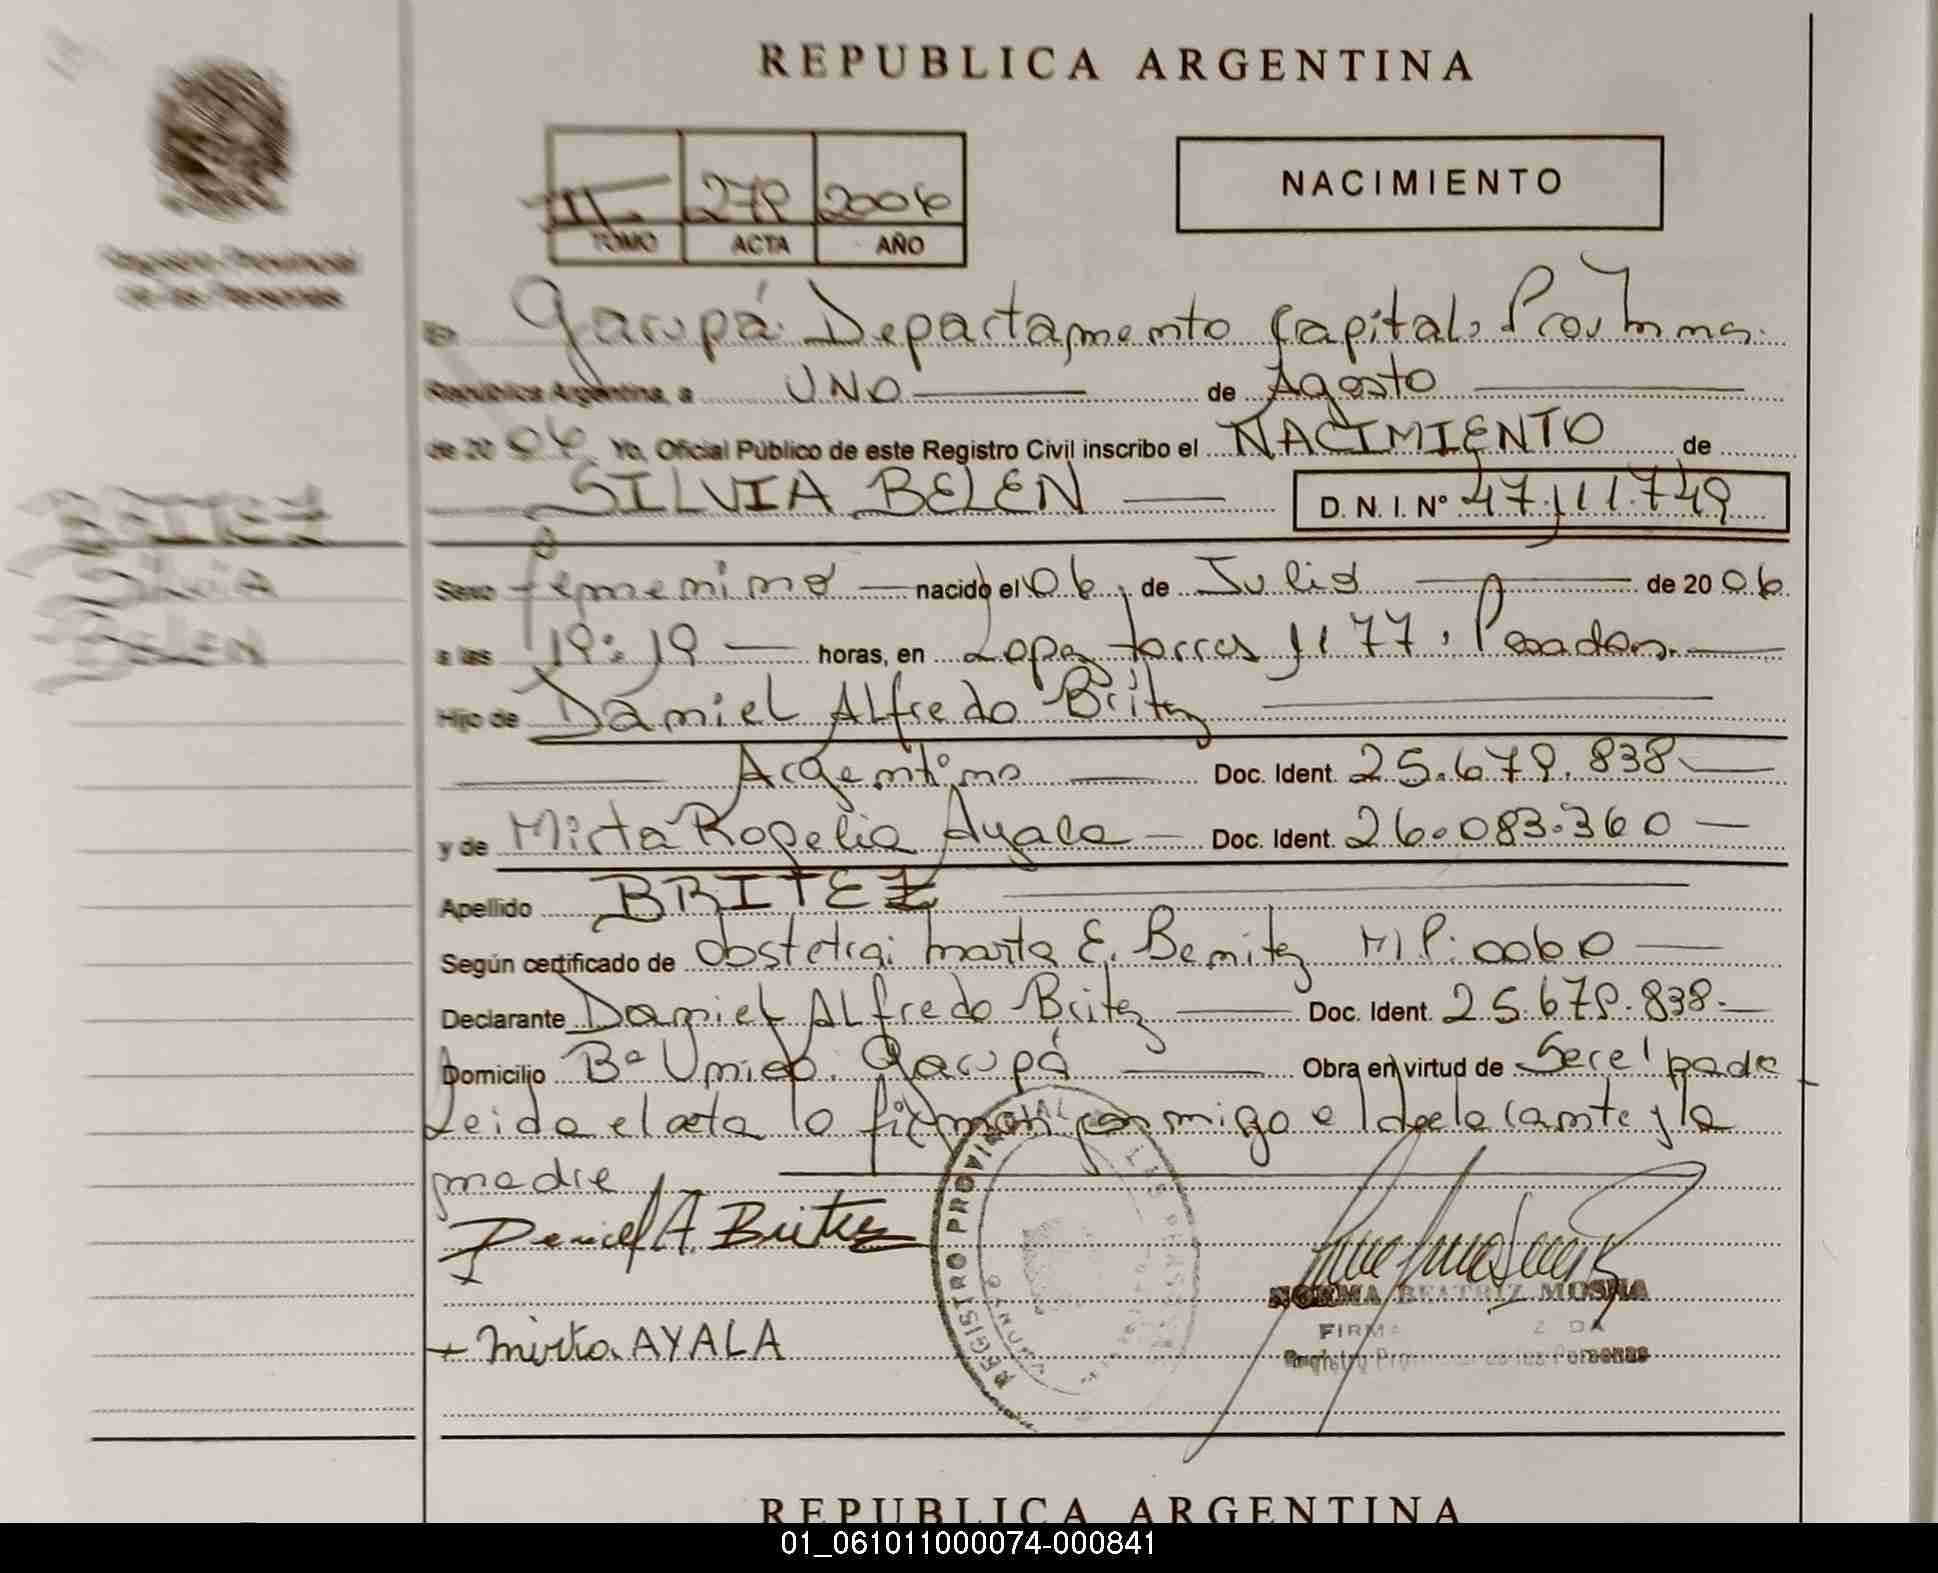 REPUBLICA ARGENTINA
NACIMIENTO
III 279 2006
TOMO ACTA AÑO
Registro Provincial
de las Personas
En Garupá Departamento Capital, Prov Mnes.
República Argentina, a UNO de Agosto
de 2006 Yo, Oficial Público de este Registro Civil inscribo el NACIMIENTO de
SILVIA BELEN D. N. I. Nº 47.111.749
BRITEZ
Silvia
BELEN
Sexo femenino nacido el 06 de Julio de 2006
a las 19:19 horas, en Lopez torres 1177, Posadas.
Hijo de Daniel Alfredo Britez
Argentino Doc. Ident. 25.679.838
y de Mirta Rogelia Ayala Doc. Ident. 26.083.360
Apellido BRITEZ
Según certificado de obstetra: Marta E. Benitez M P: 0060
Declarante Daniel Alfredo Britez Doc. Ident. 25.679.838
Domicilio Bº Unido. Garupá Obra en virtud de Ser el padre
Leida el acta la firman conmigo el declarante y la
madre
Daniel A. Britez
REGISTRO PROVINCIAL DE LAS PERSONAS
NORMA BEATRIZ MOSNA
FIRMA
Registro Provincial de las Personas
+ Mirta AYALA
REPUBLICA ARGENTINA
01_061011000074-000841